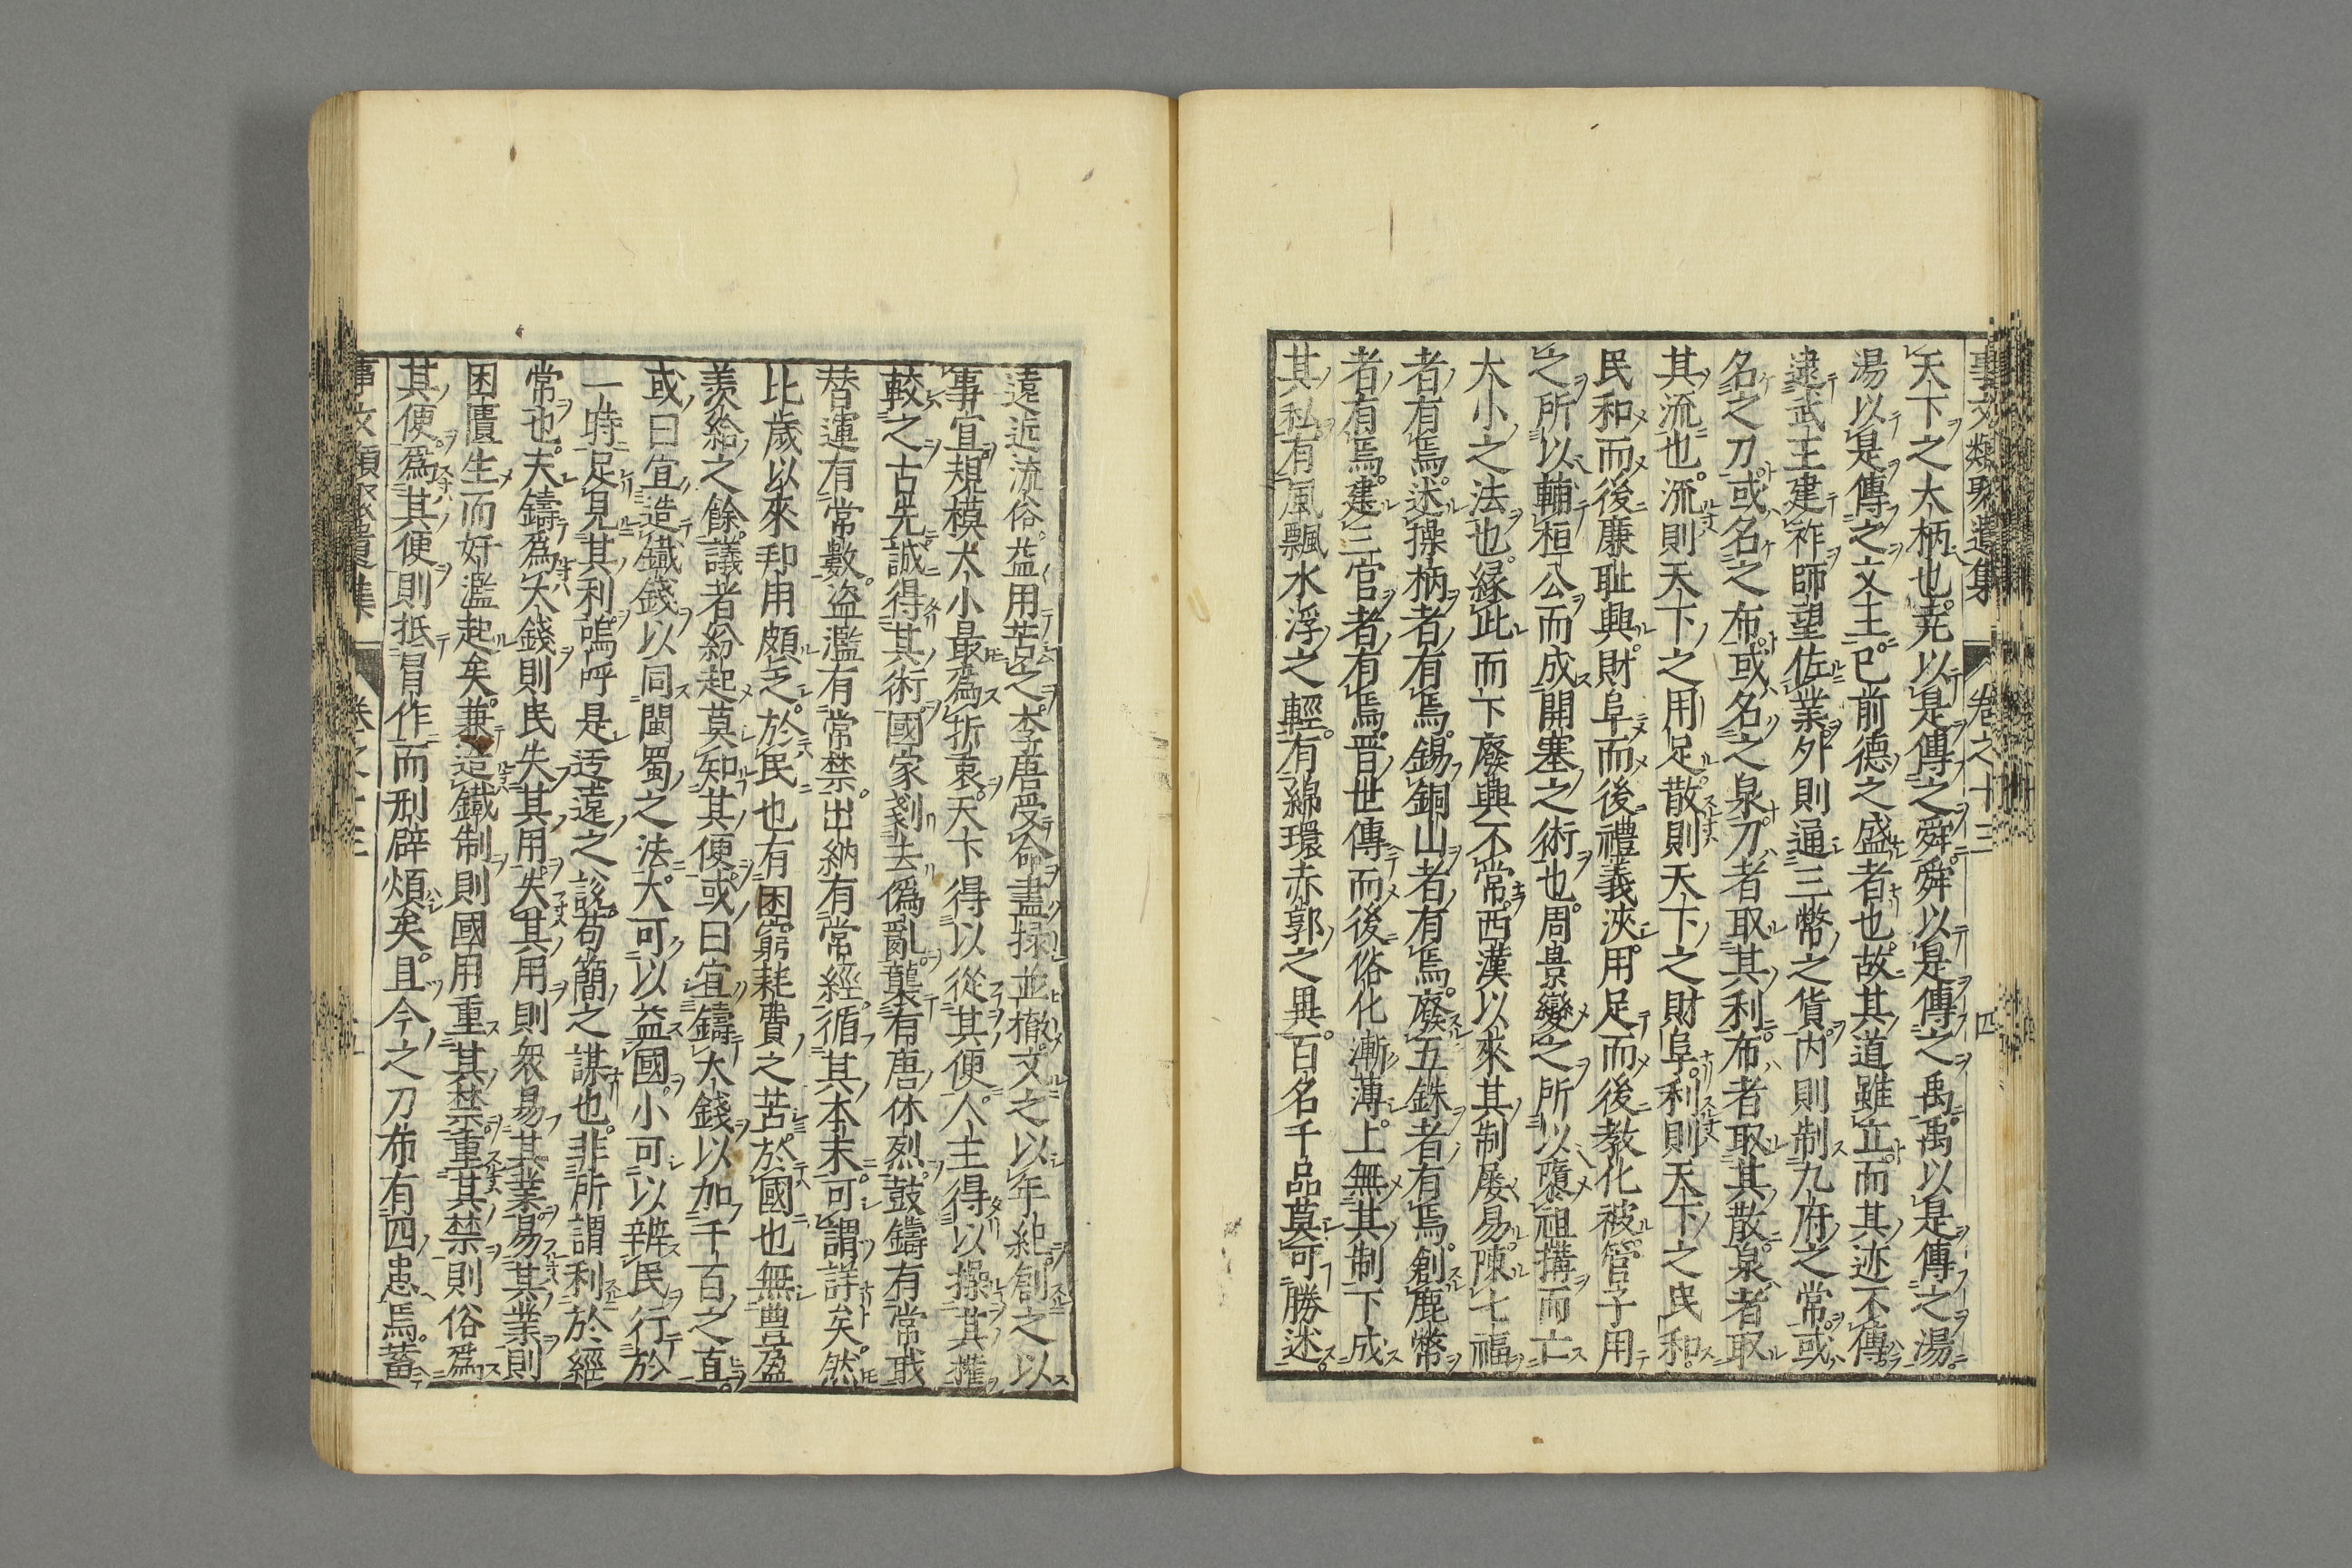 事文類聚遺集 卷之十三 四
天下之大柄也。堯以是傳之舜。舜以是傳之禹。禹以是傳之湯。
湯以是傳之文王。已前德之盛者也。故其道雖立而其迹不傳。
逮武王建祚師望佐業。外則通三幣之貨。內則制九府之常。或
名之刀。或名之布。或名之泉。刀者取其利。布者取其散。泉者取
其流也。流則天下之用足。散則天下之財阜。利則天下之民和。
民和而後廉耻興。財阜而後禮義浹。用足而後教化被。管子用
之所以輔桓公而成開塞之術也。周景變之所以隳祖搆而亡
大小之法也。緣此而下廢興不常。西漢以來其制屢易。陳七福
者有焉。述操柄者有焉。錫銅山者有焉。廢五銖者有焉。創鹿幣
者有焉。建三官者有焉。晋世傳而後俗化漸薄。上無其制下成
其私。有風飄水浮之輕。有綿環赤郭之異。百名千品莫可勝述。
遠近流俗。益用苦之。李唐受命盡掃並撤。文之以年紀。創之以
事宜。規模大小最為折衷。天下得以從其便。人主得以操其權
較之古先。誠得其術。國家剗去僞亂。襲有唐休烈。鼓鑄有常戢
替運有常數。盗濫有常禁。出納有常經。循其本末。可謂詳矣。然
比歲以來卽用頗乏。於民也有困窮耗費之苦。於國也無豊盈
羨給之餘。議者紛起莫知其便。或曰宜鑄大錢以加千百之直。
或曰宜造鐵錢以同閩蜀之法。大可以益國。小可以辨民。行於
一時足見其利。嗚呼是迂遠之談。苟簡之謀也。非所謂利於經
常也。夫鑄為大錢則民失其用。失其用則衆易其業。易其業則
困匱生而奸濫起矣。兼造鐵制則國用重其禁。重其禁則俗爲
其便。爲其便則抵冒作而刑辟煩矣。且今之刀布有四患焉。蓄
事文類聚遺集 卷之十三 五